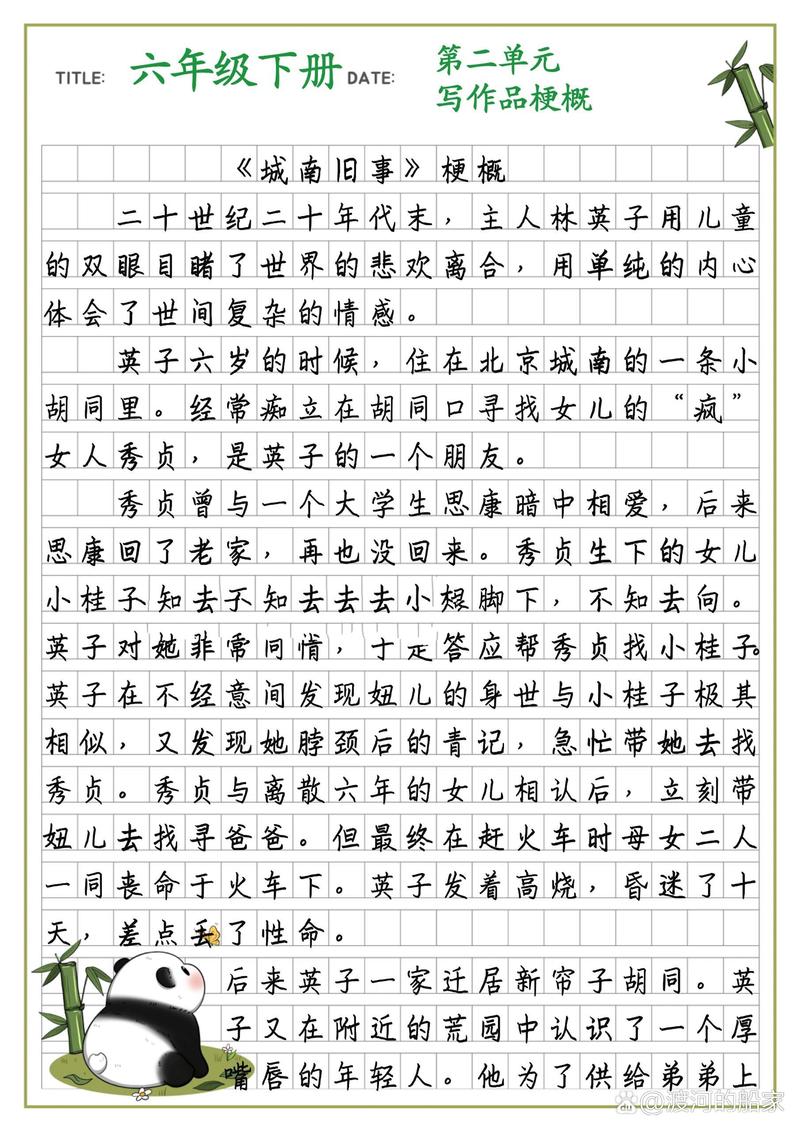 TITLE: 六年级下册 DATE: 第二单元
写作品梗概
《城南旧事》梗概
二十世纪二十年代末，主人林英子用儿童
的双眼目睹了世界的悲欢离合，用单纯的内心
体会了世间复杂的情感。
英子六岁的时候，住在北京城南的一条小
胡同里。经常痴立在胡同口寻找女儿的“疯”
女人秀贞，是英子的一个朋友。
秀贞曾与一个大学生思康暗中相爱，后来
思康回了老家，再也没回来。秀贞生下的女儿
小桂子知去不知去去去小根脚下，不知去向。
英子对她非常同情，于是答应帮秀贞找小桂子。
英子在不经意间发现妞儿的身世与小桂子极其
相似，又发现她脖颈后的青记，急忙带她去找
秀贞。秀贞与离散六年的女儿相认后，立刻带
妞儿去找寻爸爸。但最终在赶火车时母女二人
一同丧命于火车下。英子发着高烧，昏迷了十
天，差点丢了性命。
后来英子一家迁居新帘子胡同。英
子又在附近的荒园中认识了一个厚
嘴唇的年轻人。他为了供给弟弟上
@渡河的船家